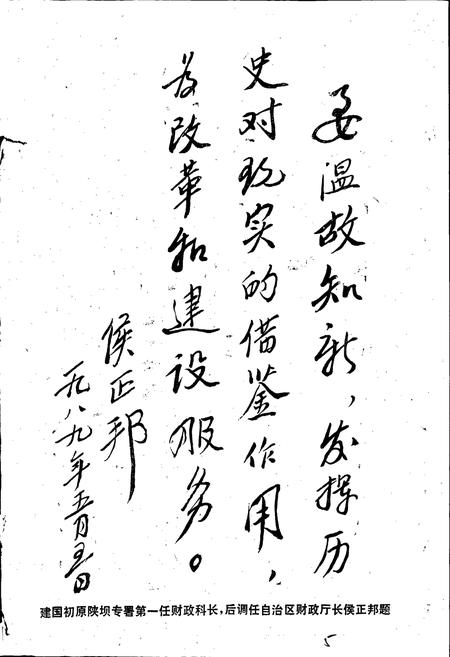 要温故知新，发挥历
史对现实的借鉴作用，
为改革和建设服务。
侯正邦
一九八九年五月五日
建国初原陕坝专署第一任财政科长，后调任自治区财政厅长侯正邦题
5